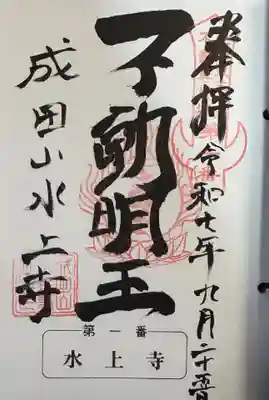 奉拝 令和七年九月二十四日
不動明王
成田山水上寺
第一番
水上寺